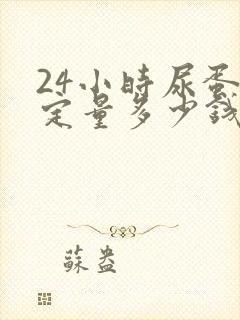 24小時尿蛋
定量多少錢
蘇盎